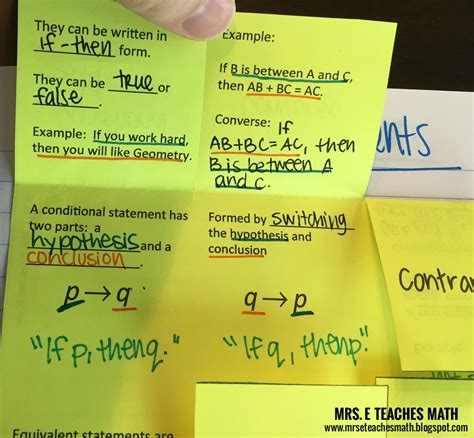 They can be written in
if-then form.
They can be true or
false.
Example: If you work hard,
then you will like Geometry.
Example:
If B is between A and C,
then AB + BC = AC.
Converse: If
AB+BC=AC, then
B is between A
and C.
nts
A conditional statement has
two parts: a
hypothesis and a
conclusion.
p→q
"If p, then q."
Formed by switching
the hypothesis and
conclusion
q→p
"If q, then p."
Contra
MRS. E TEACHES MATH
www.mrseteachesmath.blogspot.com
Equivalent statements are